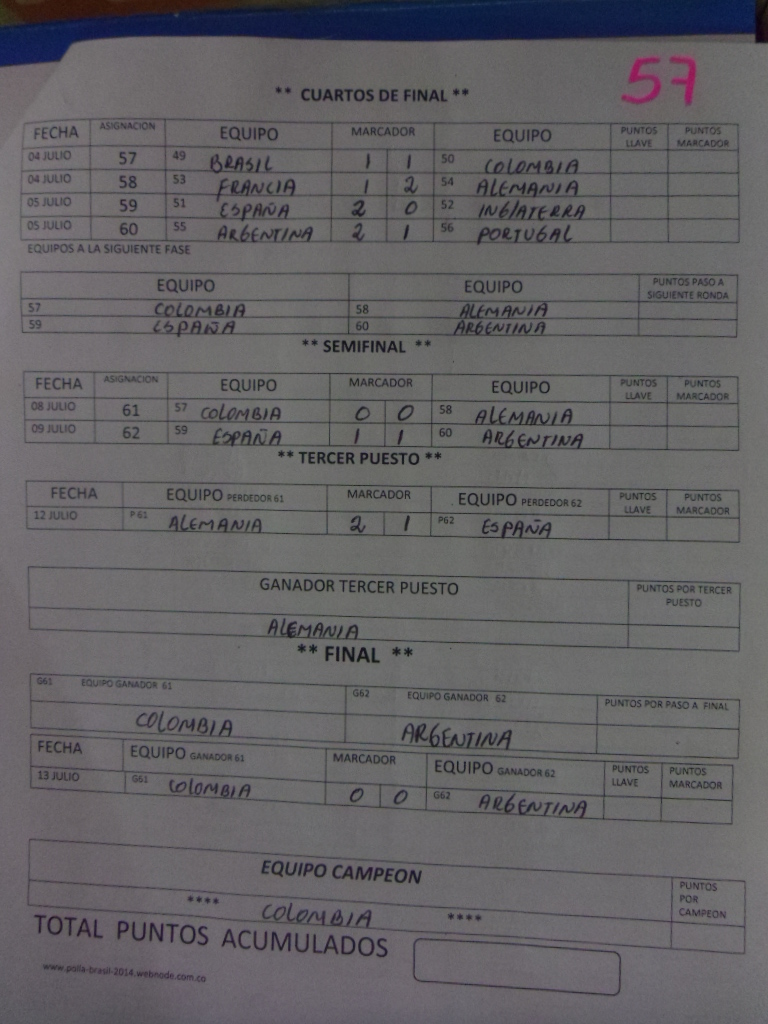 57
** CUARTOS DE FINAL **
FECHA ASIGNACION EQUIPO MARCADOR EQUIPO PUNTOS LLAVE PUNTOS MARCADOR
04 JULIO 57 49 BRASIL 1 1 50 COLOMBIA
04 JULIO 58 53 FRANCIA 1 2 54 ALEMANIA
05 JULIO 59 51 ESPAÑA 2 0 52 INGlATERRA
05 JULIO 60 55 ARGENTINA 2 1 56 PORTUGAL
EQUIPOS A LA SIGUIENTE FASE
EQUIPO EQUIPO PUNTOS PASO A SIGUIENTE RONDA
57 COLOMBIA 58 ALEMANIA
59 ESPAÑA 60 ARGENTINA
** SEMIFINAL **
FECHA ASIGNACION EQUIPO MARCADOR EQUIPO PUNTOS LLAVE PUNTOS MARCADOR
08 JULIO 61 57 COLOMBIA 0 0 58 ALEMANIA
09 JULIO 62 59 ESPAÑA 1 1 60 ARGENTINA
** TERCER PUESTO **
FECHA EQUIPO PERDEDOR 61 MARCADOR EQUIPO PERDEDOR 62 PUNTOS LLAVE PUNTOS MARCADOR
12 JULIO P 61 ALEMANIA 2 1 P62 ESPAÑA
GANADOR TERCER PUESTO PUNTOS POR TERCER PUESTO
ALEMANIA
** FINAL **
G61 EQUIPO GANADOR 61 G62 EQUIPO GANADOR 62 PUNTOS POR PASO A FINAL
COLOMBIA ARGENTINA
FECHA EQUIPO GANADOR 61 MARCADOR EQUIPO GANADOR 62 PUNTOS LLAVE PUNTOS MARCADOR
13 JULIO G61 COLOMBIA 0 0 G62 ARGENTINA
EQUIPO CAMPEON PUNTOS POR CAMPEON
**** COLOMBIA ****
TOTAL PUNTOS ACUMULADOS
www.polla-brasil-2014.webnode.com.co